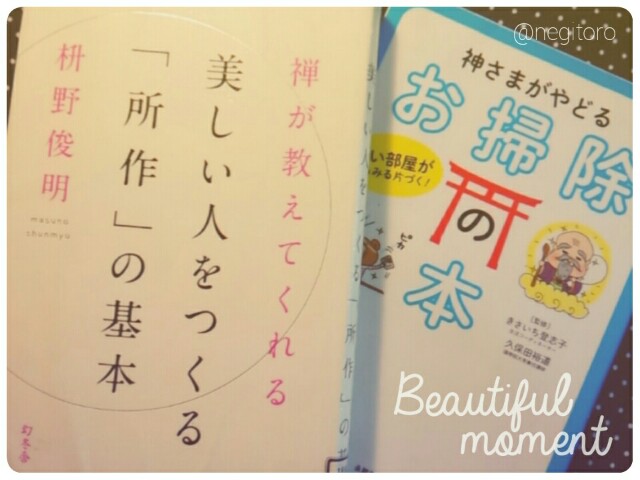 @negitoro
禅が教えてくれる
美しい人をつくる
「所作」の基本
枡野俊明
masuno
shunmyo
幻冬舎
神さまがやどる
お掃除
の
本
い部屋が
みる片づく!
ピカ
[監修]
きさいち登志子
久保田裕道
Beautiful
moment